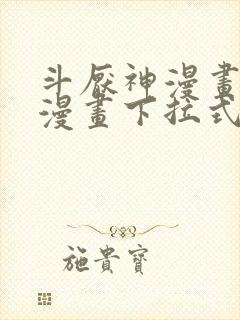 斗厭神漫畫
漫畫下拉式
施貴寶